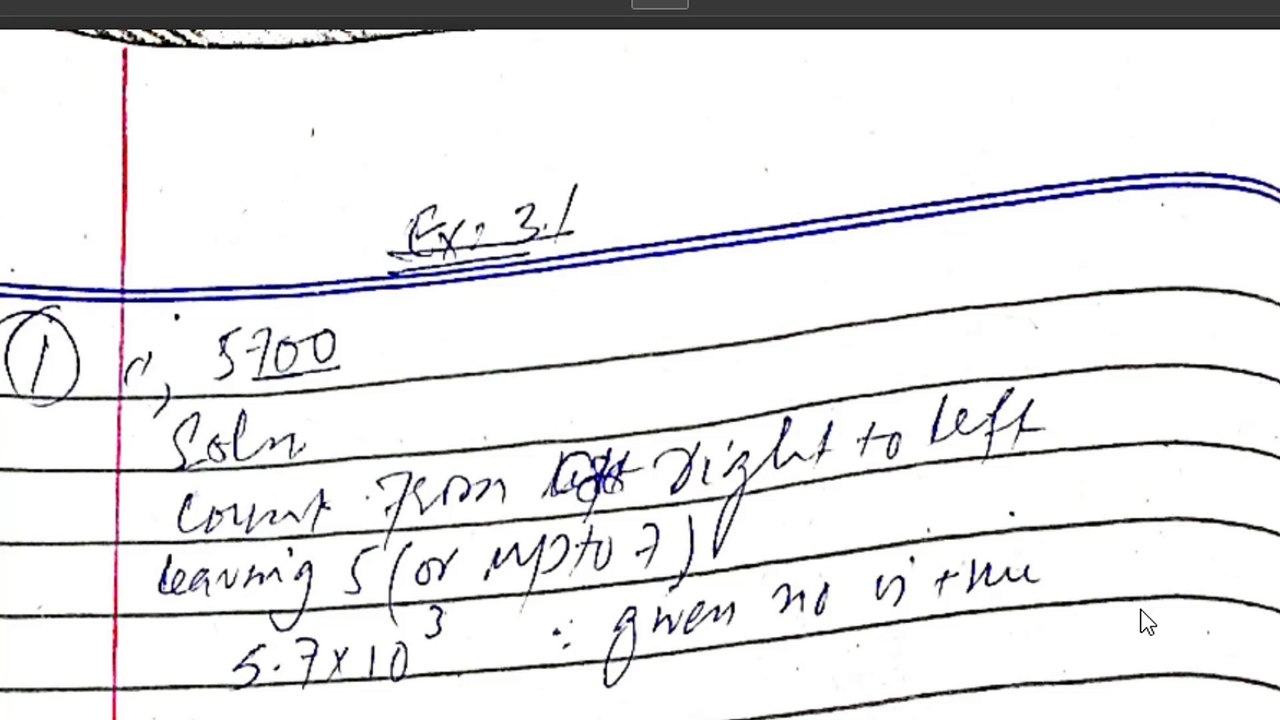 Ex: 3.1
① i, 5700
Soln
Count from right to left
leaving 5 (or upto 7)
5.7×10³ ∵ given no is +ive